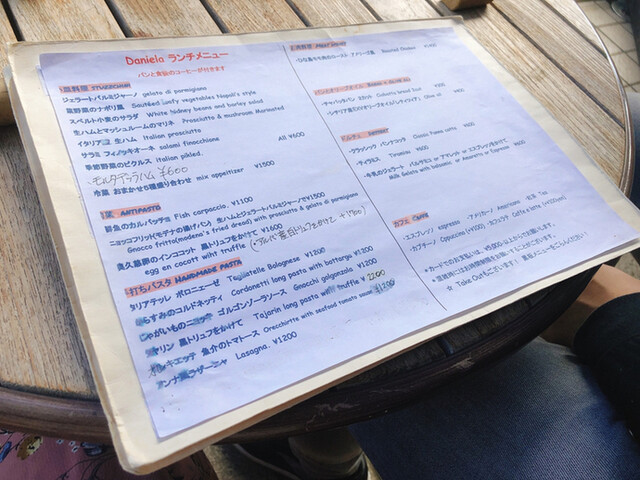 Daniela ランチメニュー
パンと食後のコーヒーが付きます
前料理 STUZZICHINI
ジェラートパルミジャーノ gelato di parmigiano
葉野菜のナポリ風 Sautéed leafy vegetables Napoli's style
スペルト小麦のサラダ White kidney beans and barley salad
生ハムとマッシュルームのマリネ Prosciutto & mushroom Marinated
イタリア産 生ハム Italian prosciutto
サラミ フィノッキオーネ salami finocchione All ¥600
季節野菜のピクルス italian pikled.
モルタデッラハム ¥600
冷菜 おまかせ5種盛り合わせ mix appetizer ¥1500
前菜 ANTIPASTO
鮮魚のカルパッチョ Fish carpaccio. ¥1100
ニョッコフリット(モデナの揚げパン) 生ハムとジェラートパルミジャーノで¥1500
Gnocco fritto(modena's fried dread) with prosciutto & gelato di parmigiano
奥久慈卵のインココット 黒トリュフをかけて ¥1600
egg en cocott wiht truffle
手打ちパスタ HANDMADE PASTA
タリアテッレ ボロニェーゼ Tagliatelle Bolognese ¥1200
からすみのコルドネッティ Cordonetti long pasta with bottarga ¥1200
じゃがいものニョッキ ゴルゴンゾーラソース Gnocchi golgonzola ¥1200
タヤリン 黒トリュフをかけて Tajarin long pasta with truffle ¥2200
オレキエッテ 魚介のトマトソース Orecchiette with seafood tomato sauce ¥1200
ラザーニャ Lasagna. ¥1200
パンとオリーブオイル
ドルチェ DESSERT
・クラッシック パンナコッタ Classic Panna cotta ¥500
・ティラミス Tiramisu ¥600
・牛乳のジェラート バルサミコ or アマレット or エスプレッソをかけて
Milk Gelato with balsamic or Amaretto or Espresso ¥600
カフェ Caffè
・エスプレッソ espresso ・アメリカーノ Americano ・紅茶 Tea
・カプチーノ Cppuccino (+¥100) ・カフェラテ Caffè e latte (+¥100)
☆ Take Outもございます！